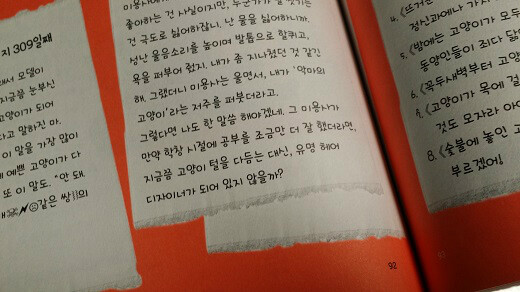 지 309일째
해서 모델이
지금쯤 눈부신
고양이가 되어
라고 말하진 마.
이 말을 가장 많이
예쁜 고양이가 다
또 이 말도. "안 돼.
같은 쌍
좋아하는 건 사실이지만, 누군가가
건 극도로 싫어하잖니. 난 물을 싫어하니까.
성난 울음소리를 높이며 발톱으로 할퀴고,
욕을 퍼부어 줬지. 내가 좀 지나쳤던 것 같긴
해. 그랬더니 미용사는 울면서, 내가 '악마의
고양이'라는 저주를 퍼붓더라고.
그렇다면 나도 한 말씀 해야겠네. 그 미용사가
만약 학창 시절에 공부를 조금만 더 잘 했더라면,
지금쯤 고양이 털을 다듬는 대신, 유명 헤어
디자이너가 되어 있지 않을까?
92
4. 《뜨거운
정신과에나 가
5. 《밤에는 고양이가 모두
동양인들이 죄다 닮
6. 《꼭두새벽부터 고양
7. 《고양이가 목에 걸
것도 모자라 아
8. 《숯불에 놓인 고
부르겠어!